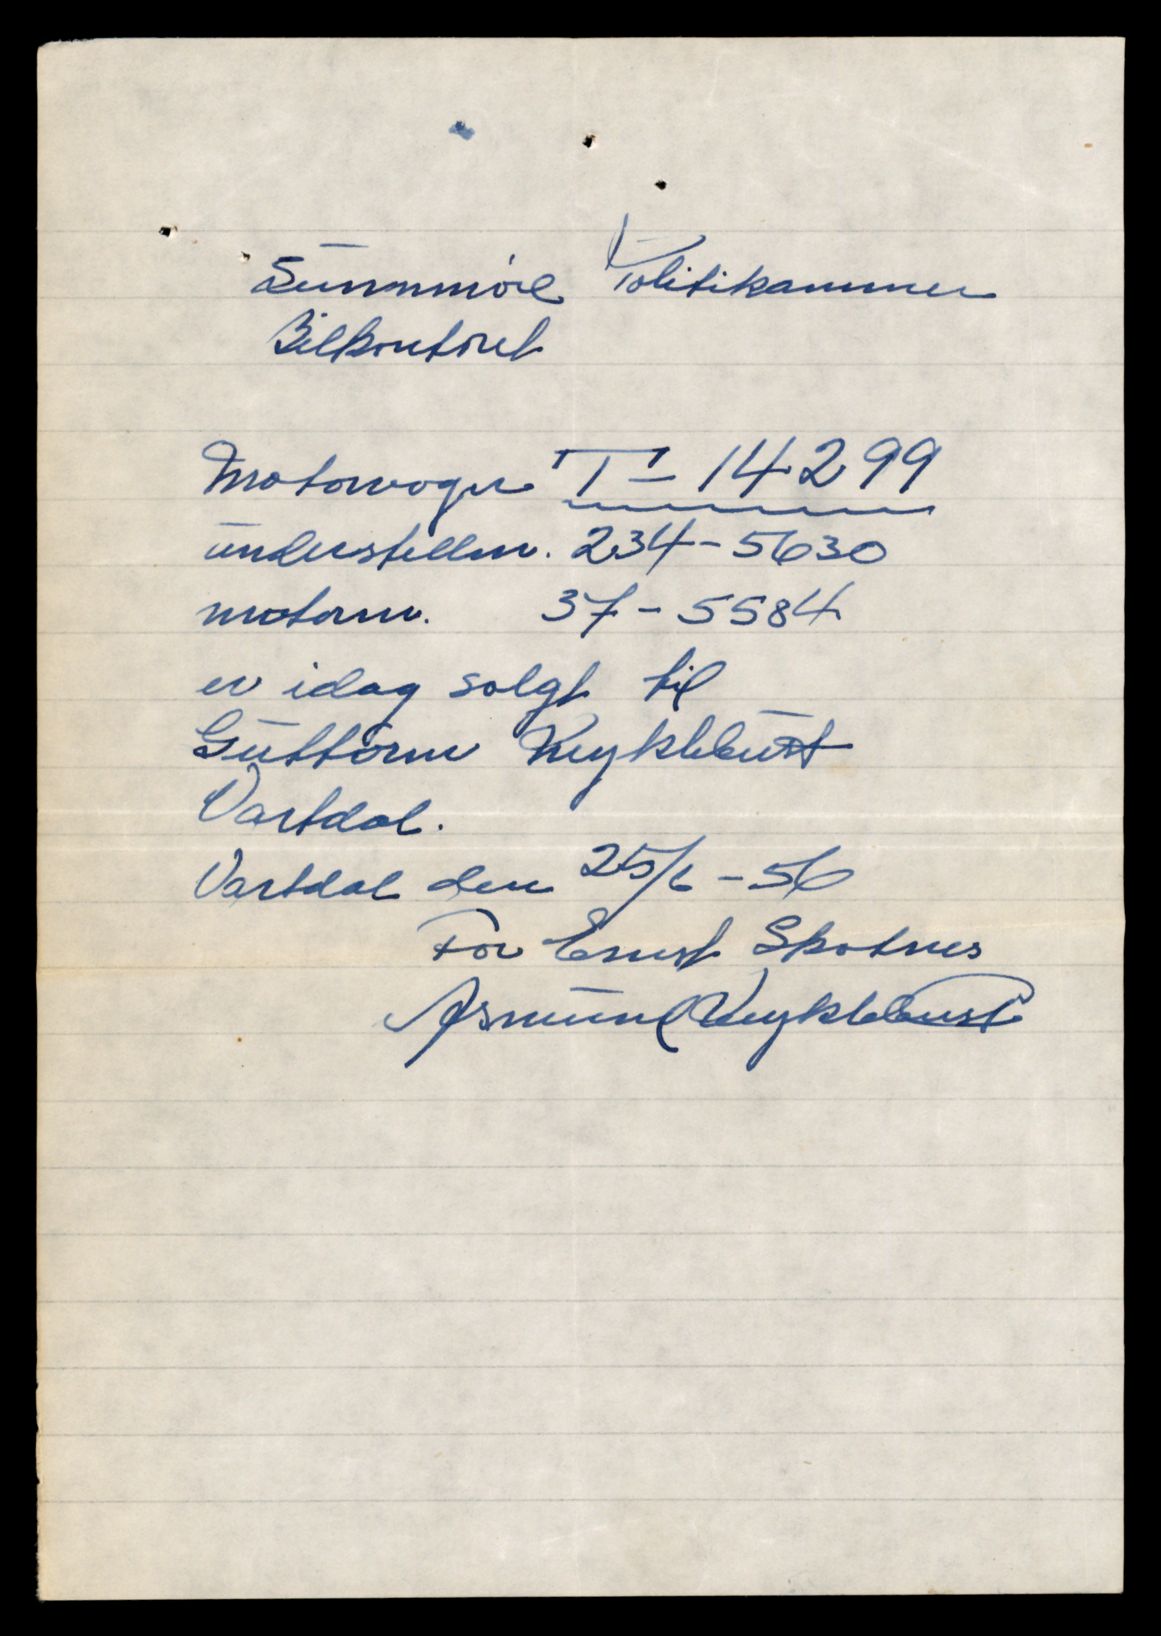 Sunnmöre Politikammer
Bilkontoret
Motorvogn T-14299
understellnr. 234-5630
motornr. 37-5584
er idag solgt til
Guttorm Myklebust
Vartdal.
Vartdal den 25/6-56
For Ernst Skotnes
Asmund Myklebust